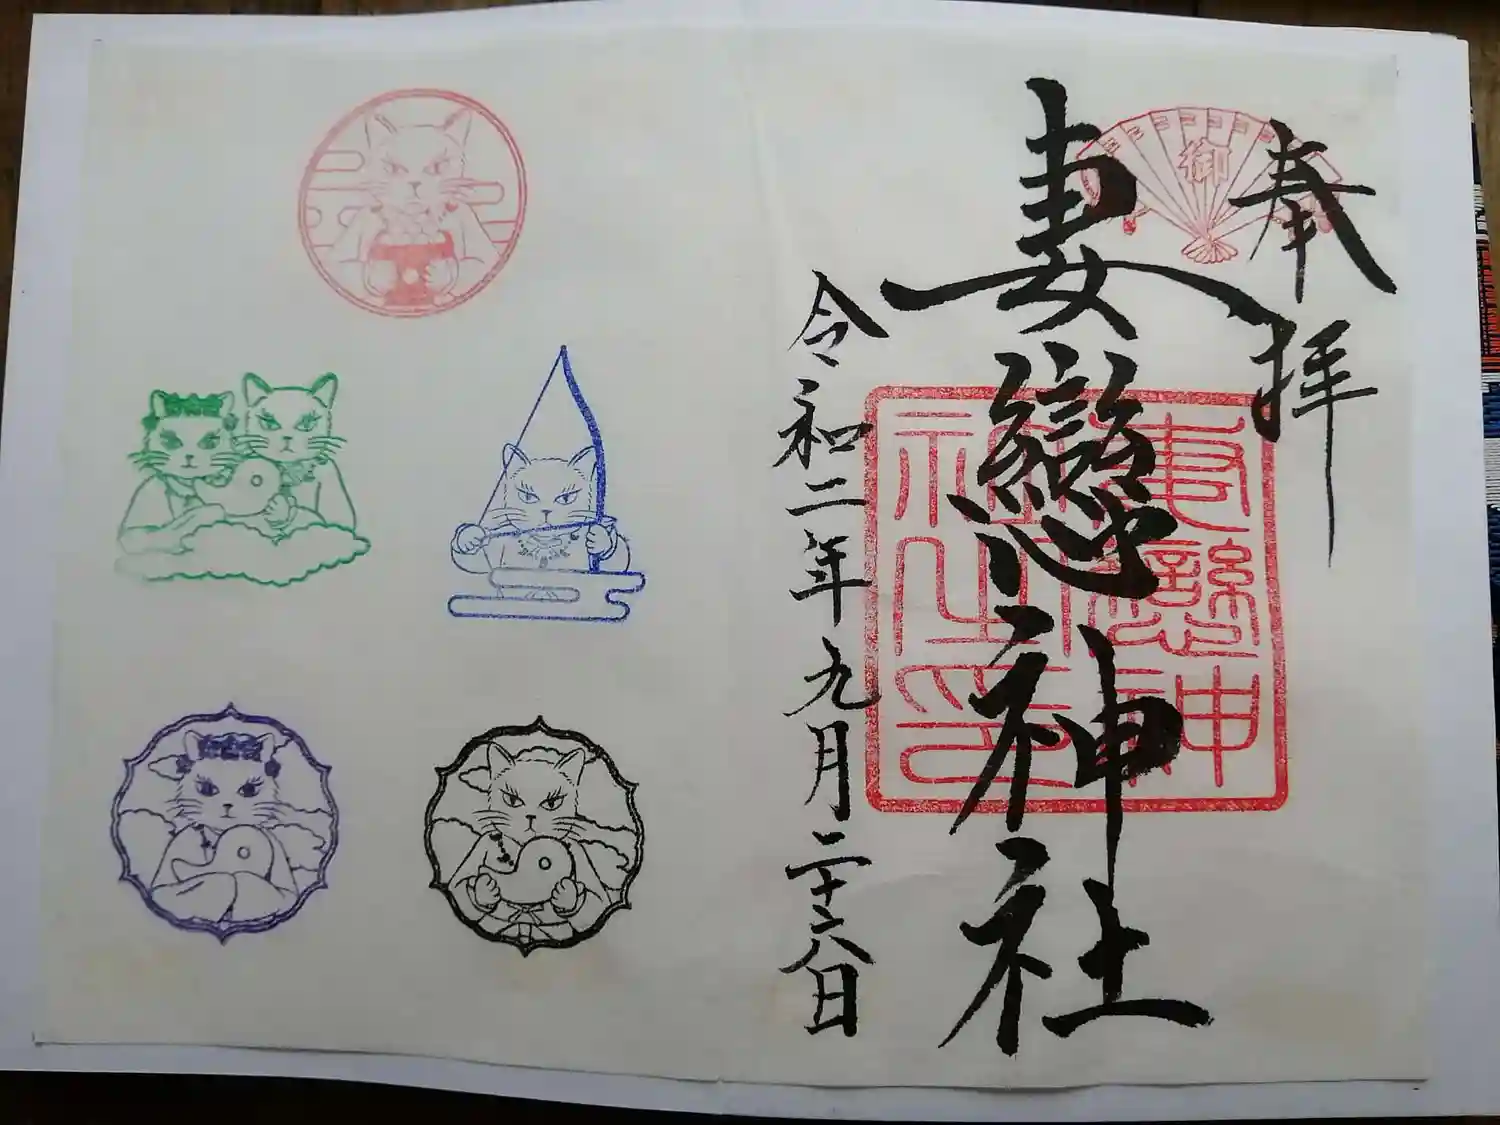 奉拝
御
妻戀神社
妻戀神
社之印
令和二年九月二十六日